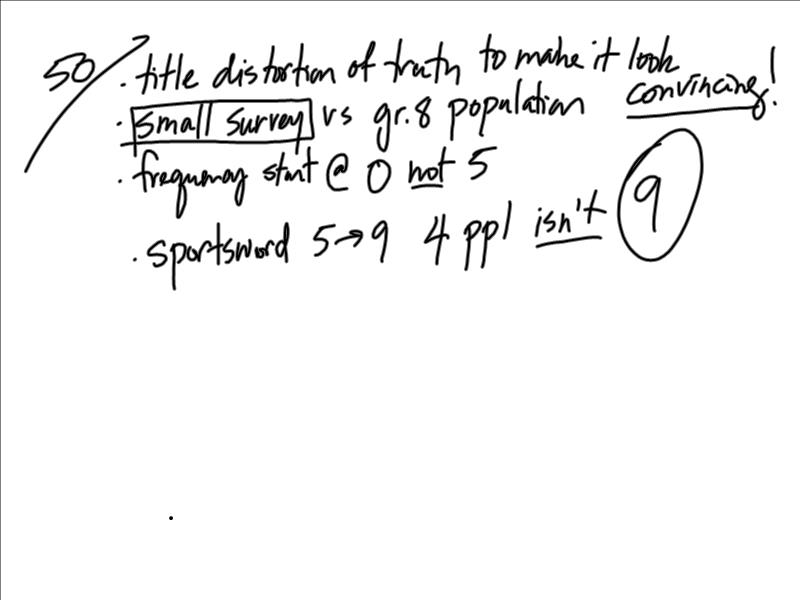 50
. title distortion of truth to make it look
convincing!
. small survey vs gr.8 population
. frequency start @ 0 not 5
. sportsword 5→9 4 ppl isn't 9